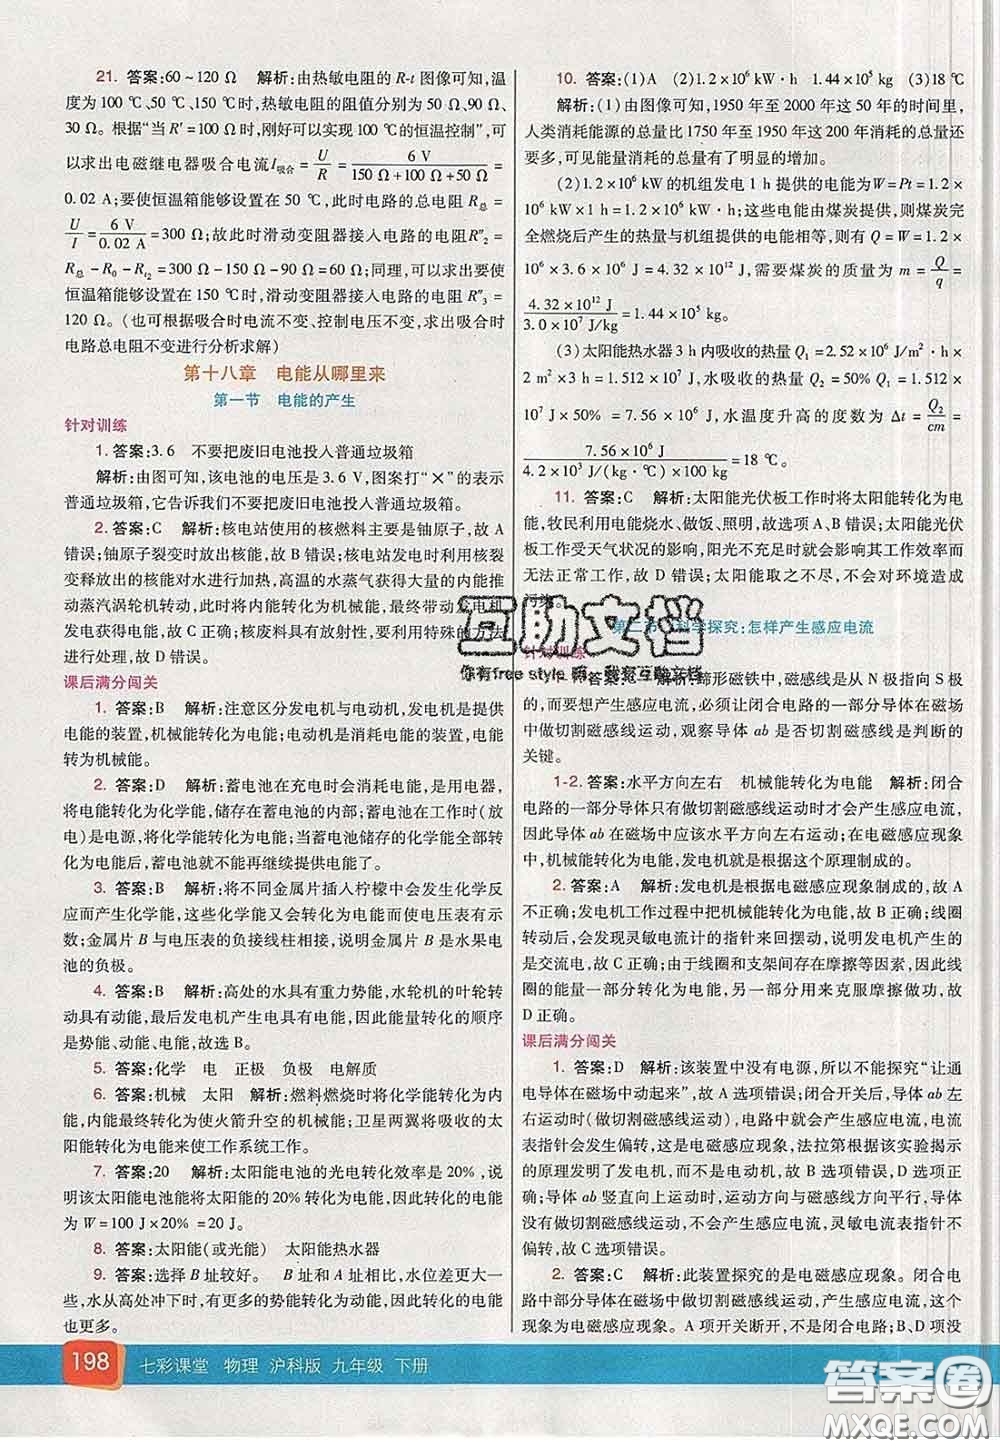 21. 答案:60~120 Ω 解析:由热敏电阻的 R-t 图像可知,温
度为 100 ℃、50 ℃、150 ℃时,热敏电阻的阻值分别为 50 Ω、90 Ω、
30 Ω。根据“当 R′=100 Ω时,刚好可以实现 100 ℃的恒温控制”,可
以求出电磁继电器吸合电流I吸合=U/R=6 V/(150 Ω+100 Ω+50 Ω)=
0.02 A;要使恒温箱能够设置在 50 ℃,此时电路的总电阻 R总=
U/I=6 V/0.02 A=300 Ω;故此时滑动变阻器接入电路的电阻R″₂=
R总-R₀-Rt₂=300 Ω-150 Ω-90 Ω=60 Ω;同理,可以求出要使
恒温箱能够设置在 150 ℃时,滑动变阻器接入电路的电阻 R″₃=
120 Ω。(也可根据吸合时电流不变、控制电压不变,求出吸合时
电路总电阻不变进行分析求解)
第十八章 电能从哪里来
第一节 电能的产生
针对训练
1. 答案:3.6 不要把废旧电池投入普通垃圾箱
解析:由图可知,该电池的电压是 3.6 V,图案打“×”的表示
普通垃圾箱,它告诉我们不要把废旧电池投入普通垃圾箱。
2. 答案:C 解析:核电站使用的核燃料主要是铀原子,故 A
错误;铀原子裂变时放出核能,故 B 错误;核电站发电时利用核裂
变释放出的核能对水进行加热,高温的水蒸气获得大量的内能推
动蒸汽涡轮机转动,此时将内能转化为机械能,最终带动发电机
发电获得电能,故 C 正确;核废料具有放射性,要利用特殊的方法
进行处理,故 D 错误。
课后满分闯关
1. 答案:B 解析:注意区分发电机与电动机,发电机是提供
电能的装置,机械能转化为电能;电动机是消耗电能的装置,电能
转为机械能。
2. 答案:D 解析:蓄电池在充电时会消耗电能,是用电器,
将电能转化为化学能,储存在蓄电池的内部;蓄电池在工作时(放
电)是电源,将化学能转化为电能;当蓄电池储存的化学能全部转
化为电能后,蓄电池就不能再继续提供电能了。
3. 答案:B 解析:将不同金属片插入柠檬中会发生化学反
应而产生化学能,这些化学能又会转化为电能而使电压表有示
数;金属片 B 与电压表的负接线柱相接,说明金属片 B 是水果电
池的负极。
4. 答案:B 解析:高处的水具有重力势能,水轮机的叶轮转
动具有动能,最后发电机产生电具有电能,因此能量转化的顺序
是势能、动能、电能,故选 B。
5. 答案:化学 电 正极 负极 电解质
6. 答案:机械 太阳 解析:燃料燃烧时将化学能转化为内
能,内能最终转化为使火箭升空的机械能;卫星两翼将吸收的太
阳能转化为电能来使工作系统工作。
7. 答案:20 解析:太阳能电池的光电转化效率是 20%,说
明该太阳能电池能将太阳能的 20%转化为电能,因此转化的电能
为 W=100 J×20% =20 J。
8. 答案:太阳能(或光能) 太阳能热水器
9. 答案:选择 B 址较好。 B 址和 A 址相比,水位差更大一
些,水从高处冲下时,有更多的势能转化为动能,能发出的电能
也更多。
10. 答案:(1)A (2)1.2×10⁶ kW·h 1.44×10⁵ kg (3)18 ℃
解析:(1)由图像可知,1950 年至 2000 年这 50 年的时间里,
人类消耗能源的总量比 1750 年至 1950 年这 200 年消耗的总量还
要多,可见能量消耗的总量有了明显的增加。
(2)1.2×10⁶ kW 的机组发电 1 h 提供的电能为W=Pt=1.2×
10⁶ kW×1 h=1.2×10⁶ kW·h;这些电能由煤炭提供,则煤炭完
全燃烧后产生的热量与机组提供的电能相等,则有 Q=W=1.2×
10⁶×3.6×10⁶ J=4.32×10¹² J,需要煤炭的质量为 m=Q/q=
4.32×10¹² J/3.0×10⁷ J/kg=1.44×10⁵ kg。
(3)太阳能热水器 3 h 内吸收的热量 Q₁=2.52×10⁶ J/m²·h×
2 m²×3 h=1.512×10⁷ J,水吸收的热量 Q₂=50% Q₁=1.512×
10⁷ J×50% =7.56×10⁶ J,水温度升高的度数为 Δt=Q₂/cm=
7.56×10⁶ J/4.2×10³ J/(kg·℃)×100 kg=18 ℃。
11. 答案:C 解析:太阳能光伏板工作时将太阳能转化为电
能,牧民利用电能烧水、做饭、照明,故选项 A、B 错误;太阳能光伏
板工作受天气状况的影响,阳光不充足时就会影响其工作效率而
无法正常工作,故 D 错误;太阳能取之不尽,不会对环境造成
污染。
第二节 科学探究:怎样产生感应电流
针对训练
1-1. 答案:C 解析:蹄形磁铁中,磁感线是从 N 极指向 S 极
的,而要想产生感应电流,必须让闭合电路的一部分导体在磁场
中做切割磁感线运动,观察导体 ab 是否切割磁感线是判断的
关键。
1-2. 答案:水平方向左右 机械能转化为电能 解析:闭合
电路的一部分导体只有做切割磁感线运动时才会产生感应电流,
因此导体 ab 在磁场中应该水平方向左右运动;在电磁感应现象
中,机械能转化为电能,发电机就是根据这个原理制成的。
2. 答案:A 解析:发电机是根据电磁感应现象制成的,故 A
不正确;发电机工作过程中把机械能转化为电能,故 B 正确;线圈
转动后,会发现灵敏电流计的指针来回摆动,说明发电机产生的
是交流电,故 C 正确;由于线圈和支架间存在摩擦等因素,因此线
圈的能量一部分转化为电能,另一部分用来克服摩擦做功,因此
D 正确。
课后满分闯关
1. 答案:D 解析:该装置中没有电源,所以不能探究“让通
电导体在磁场中动起来”,故 A 选项错误;闭合开关,导体 ab 左
右运动时(做切割磁感线运动),电路中就会产生感应电流,电流
表指针会发生偏转,这是电磁感应现象,法拉第根据该实验揭示
的原理发明了发电机,而不是电动机,故 B 选项错误,D 选项正
确;导体 ab 竖直向上运动时,运动方向与磁感线方向平行,导体
没有做切割磁感线运动,不会产生感应电流,灵敏电流表指针不
偏转,故 C 选项错误。
2. 答案:C 解析:此装置探究的是电磁感应现象。闭合电
路中部分导体在磁场中做切割磁感线运动,产生感应电流,这个
现象为电磁感应现象。A 项开关断开,不是闭合电路;B、D 项没
互助文档
你有free style 嘛,我有互助文档
198 七彩课堂 物理 沪科版 九年级 下册
答案圈
MXQE.COM